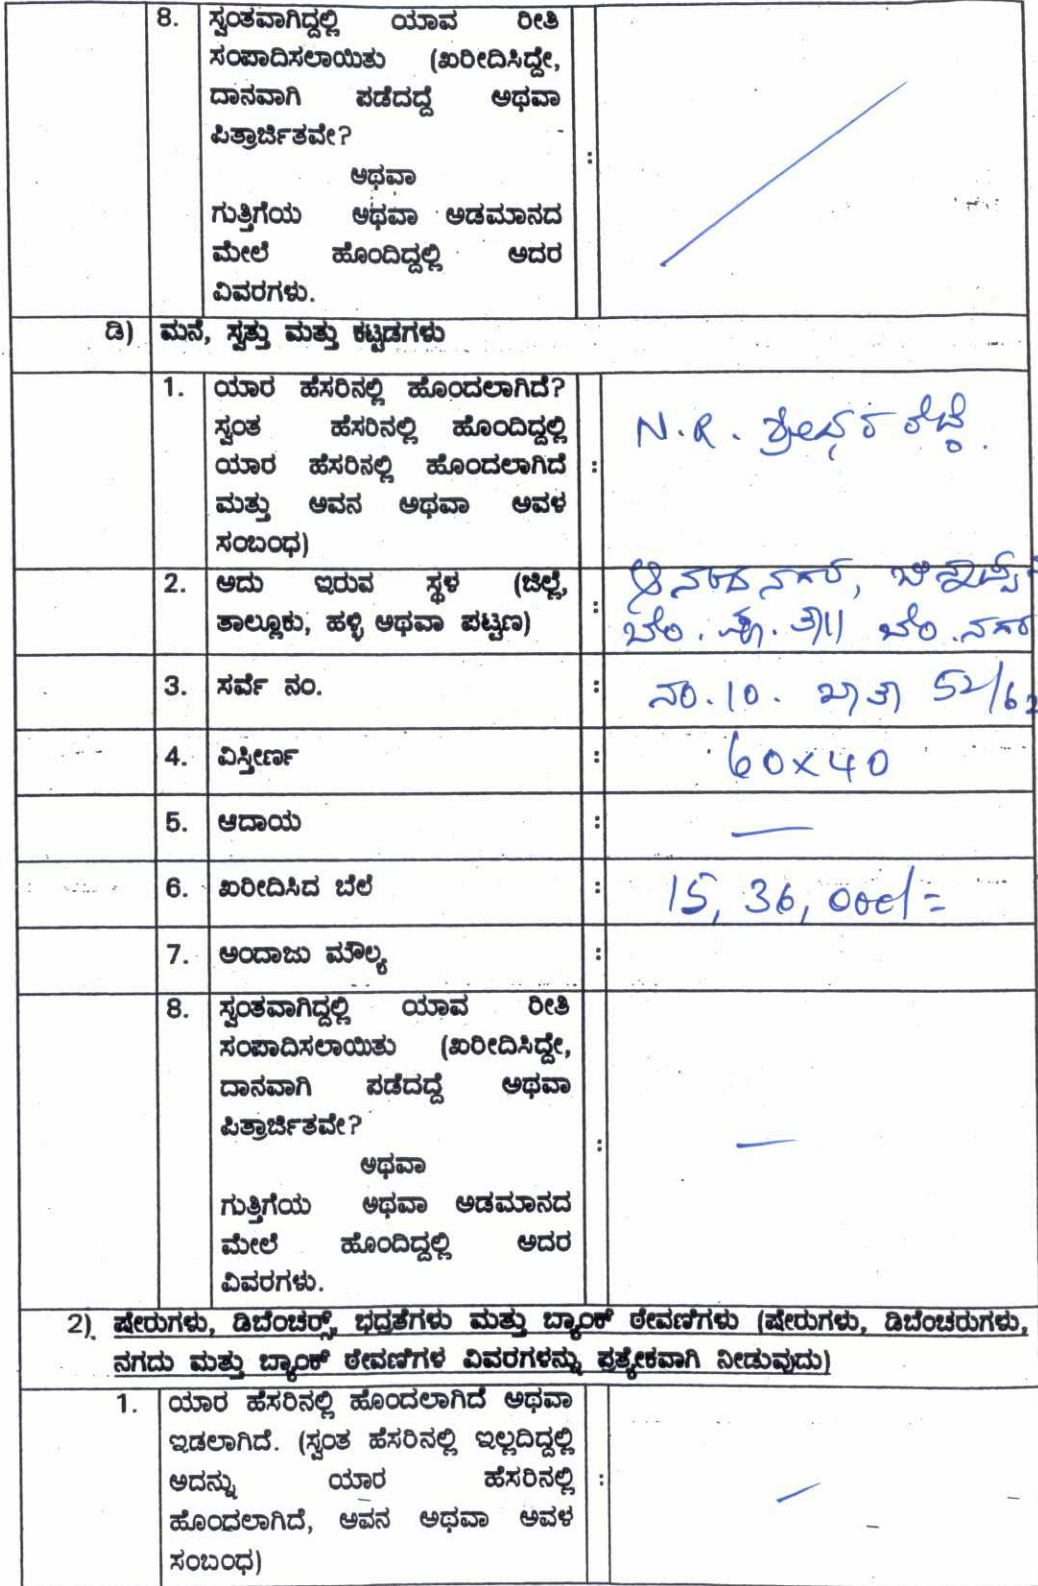 8. ಸ್ವಂತವಾಗಿದ್ದಲ್ಲಿ ಯಾವ ರೀತಿ
ಸಂಪಾದಿಸಲಾಯಿತು (ಖರೀದಿಸಿದ್ದೇ,
ದಾನವಾಗಿ ಪಡೆದದ್ದೆ ಅಥವಾ
ಪಿತ್ರಾರ್ಜಿತವೇ?
:
ಅಥವಾ
ಗುತ್ತಿಗೆಯ ಅಥವಾ ಅಡಮಾನದ
ಮೇಲೆ ಹೊಂದಿದ್ದಲ್ಲಿ ಅದರ
ವಿವರಗಳು.
ಡಿ) ಮನೆ, ಸ್ವತ್ತು ಮತ್ತು ಕಟ್ಟಡಗಳು
1. ಯಾರ ಹೆಸರಿನಲ್ಲಿ ಹೊಂದಲಾಗಿದೆ?
ಸ್ವಂತ ಹೆಸರಿನಲ್ಲಿ ಹೊಂದಿದ್ದಲ್ಲಿ
ಯಾರ ಹೆಸರಿನಲ್ಲಿ ಹೊಂದಲಾಗಿದೆ :
ಮತ್ತು ಅವನ ಅಥವಾ ಅವಳ
ಸಂಬಂಧ)
N.R. ಶ್ರೀಧರ ರೆಡ್ಡಿ.
2. ಅದು ಇರುವ ಸ್ಥಳ (ಜಿಲ್ಲೆ,
ತಾಲ್ಲೂಕು, ಹಳ್ಳಿ ಅಥವಾ ಪಟ್ಟಣ) :
ಆನಂದನಗರ,
ಬೆಂ. ಪೂ. ತಾ|| ಬೆಂ. ನಗರ
3. ಸರ್ವೆ ನಂ. : ನಂ. 10. ಖಾತಾ 52/62
4. ವಿಸ್ತೀರ್ಣ : 60x40
5. ಆದಾಯ : —
6. ಖರೀದಿಸಿದ ಬೆಲೆ : 15, 36, 000/=
7. ಅಂದಾಜು ಮೌಲ್ಯ :
8. ಸ್ವಂತವಾಗಿದ್ದಲ್ಲಿ ಯಾವ ರೀತಿ
ಸಂಪಾದಿಸಲಾಯಿತು (ಖರೀದಿಸಿದ್ದೇ,
ದಾನವಾಗಿ ಪಡೆದದ್ದೆ ಅಥವಾ
ಪಿತ್ರಾರ್ಜಿತವೇ?
: —
ಅಥವಾ
ಗುತ್ತಿಗೆಯ ಅಥವಾ ಅಡಮಾನದ
ಮೇಲೆ ಹೊಂದಿದ್ದಲ್ಲಿ ಅದರ
ವಿವರಗಳು.
2) ಷೇರುಗಳು, ಡಿಬೆಂಚರ್ಸ್, ಭದ್ರತೆಗಳು ಮತ್ತು ಬ್ಯಾಂಕ್ ಠೇವಣಿಗಳು (ಷೇರುಗಳು, ಡಿಬೆಂಚರುಗಳು,
ನಗದು ಮತ್ತು ಬ್ಯಾಂಕ್ ಠೇವಣಿಗಳ ವಿವರಗಳನ್ನು ಪ್ರತ್ಯೇಕವಾಗಿ ನೀಡುವುದು)
1. ಯಾರ ಹೆಸರಿನಲ್ಲಿ ಹೊಂದಲಾಗಿದೆ ಅಥವಾ
ಇಡಲಾಗಿದೆ. (ಸ್ವಂತ ಹೆಸರಿನಲ್ಲಿ ಇಲ್ಲದಿದ್ದಲ್ಲಿ
ಅದನ್ನು ಯಾರ ಹೆಸರಿನಲ್ಲಿ : —
ಹೊಂದಲಾಗಿದೆ, ಅವನ ಅಥವಾ ಅವಳ
ಸಂಬಂಧ)